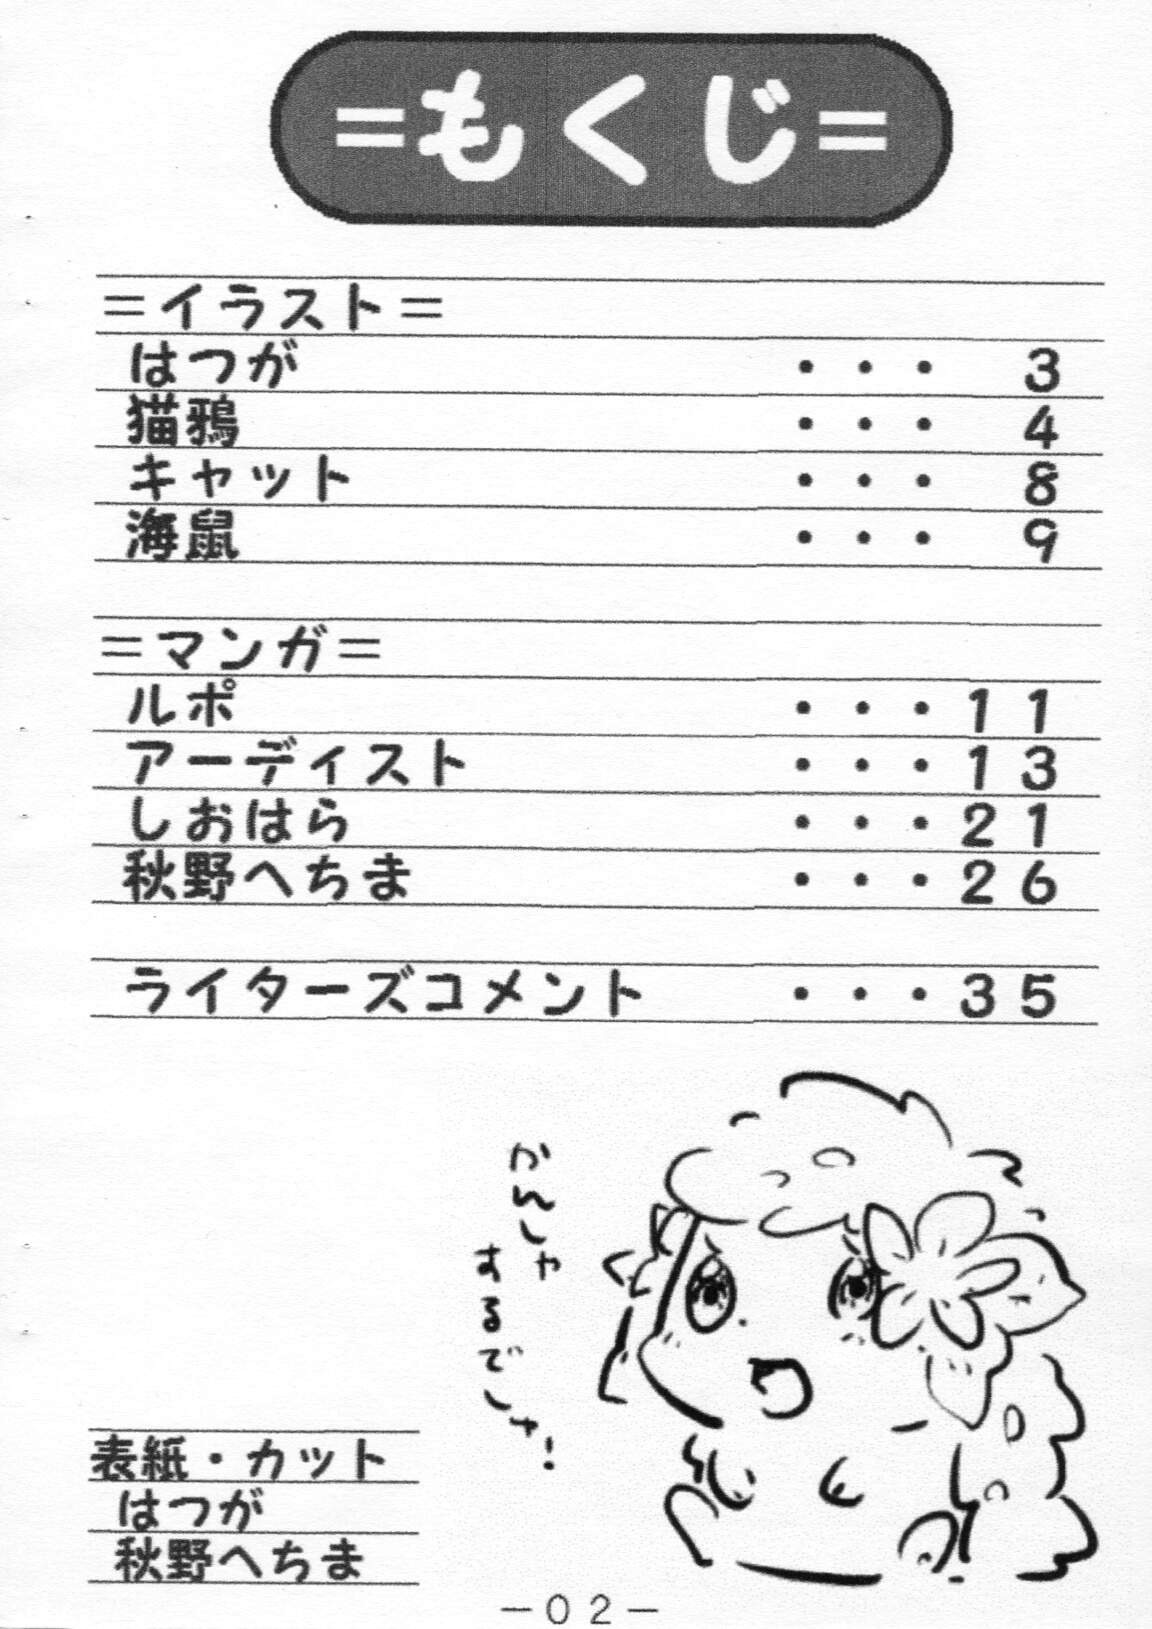 =もくじ=
=イラスト=
はつが ・・・ 3
猫鴉 ・・・ 4
キャット ・・・ 8
海鼠 ・・・ 9
=マンガ=
ルポ ・・・11
アーディスト ・・・13
しおはら ・・・21
秋野へちま ・・・26
ライターズコメント ・・・35
かんしゃ
するでしゅ!
表紙・カット
はつが
秋野へちま
-02-